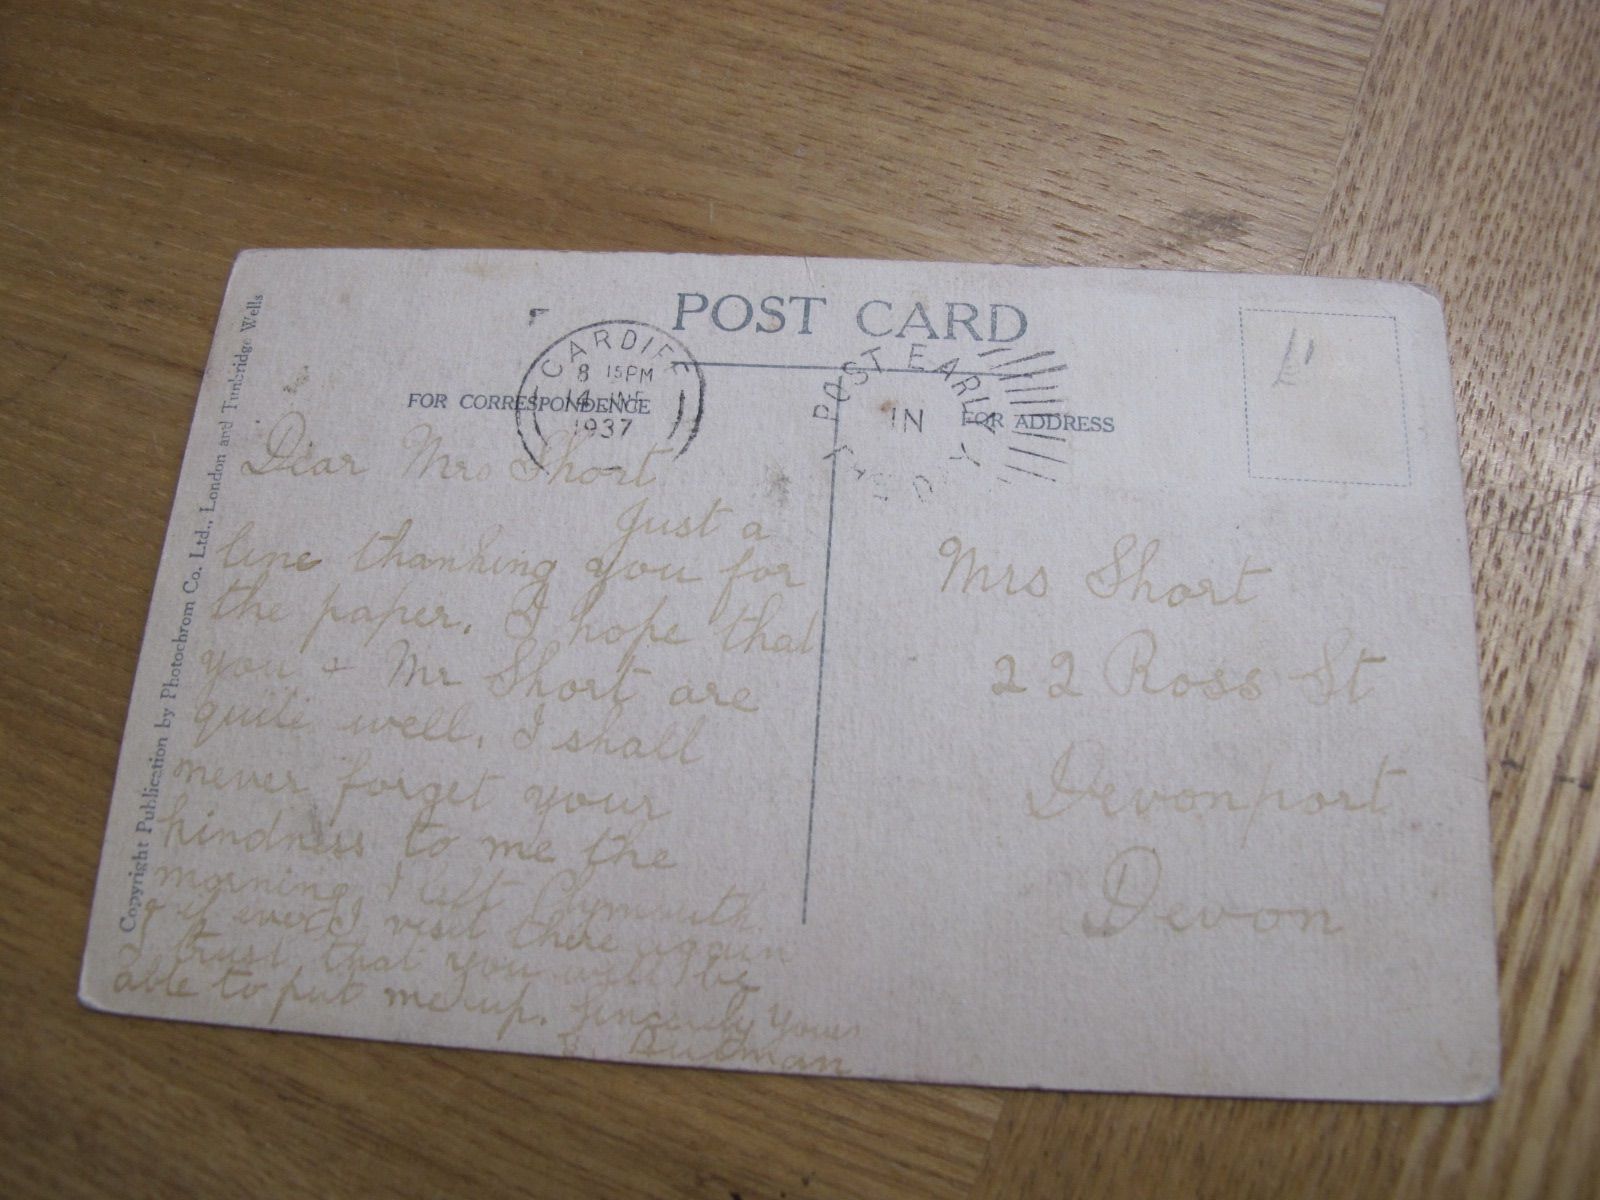 POST CARD
FOR CORRESPONDENCE
FOR ADDRESS
CARDIFF
8 15PM
14 JNE
1937
POST EARLY
IN
THE DAY
£1
Copyright Publication by Photochrom Co. Ltd., London and Tunbridge Wells
Dear Mrs Short
Just a
line thanking you for
the paper. I hope that
you & Mr Short are
quite well. I shall
never forget your
kindness to me the
morning I left Plymouth.
& if ever I visit there again
I trust that you will be
able to put me up. Sincerely Yours
Mrs Short
22 Ross St
Devonport
Devon